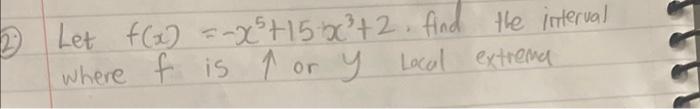 2. Let f(x) = -x⁵+15x³+2. find the interval
where f is ↑ or y local extrema